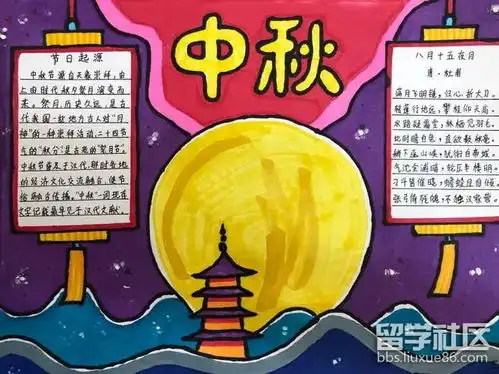 中秋
节日起源
中秋节源自天象崇拜，由
上古时代秋夕祭月演变而
来。祭月，历史久远，是古
代我国一些地方古人对"月
神"的一种崇拜活动，二十四节
气的"秋分"是古老的"祭月节"。
中秋节普及于汉代，那时各地
的经济文化交流融合，使节
俗融合传播。"中秋"一词现在
文字记载最早见于汉代文献。
八月十五夜月
唐·杜甫
满月飞明镜，归心折大刀。
转蓬行地远，攀桂仰天高。
水路疑霜雪，林栖见羽毛。
此时瞻白兔，直欲数秋毫。
稍下巫山峡，犹衔白帝城。
气沈全浦暗，轮仄半楼明。
刁斗皆催晓，蟾蜍且自倾。
张弓倚残魄，不独汉家营。
留学社区
bbs.liuxue86.com